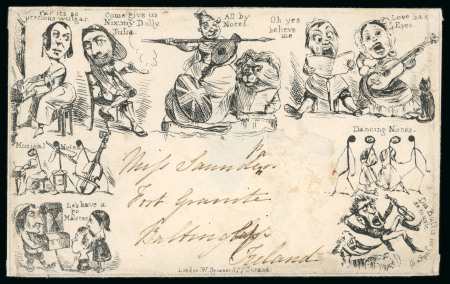 For its so
precious vulgar.
Come give us
Nix my Dolly
Julia.
All by
Notes.
Oh yes
believe
me
Love has
Eyes.
Musical Notes
Dancing Notes.
Let's have a
Master
Miss Saunders
Fort Granite
Baltinglass
Ireland
London W. Spooner 377 Strand.